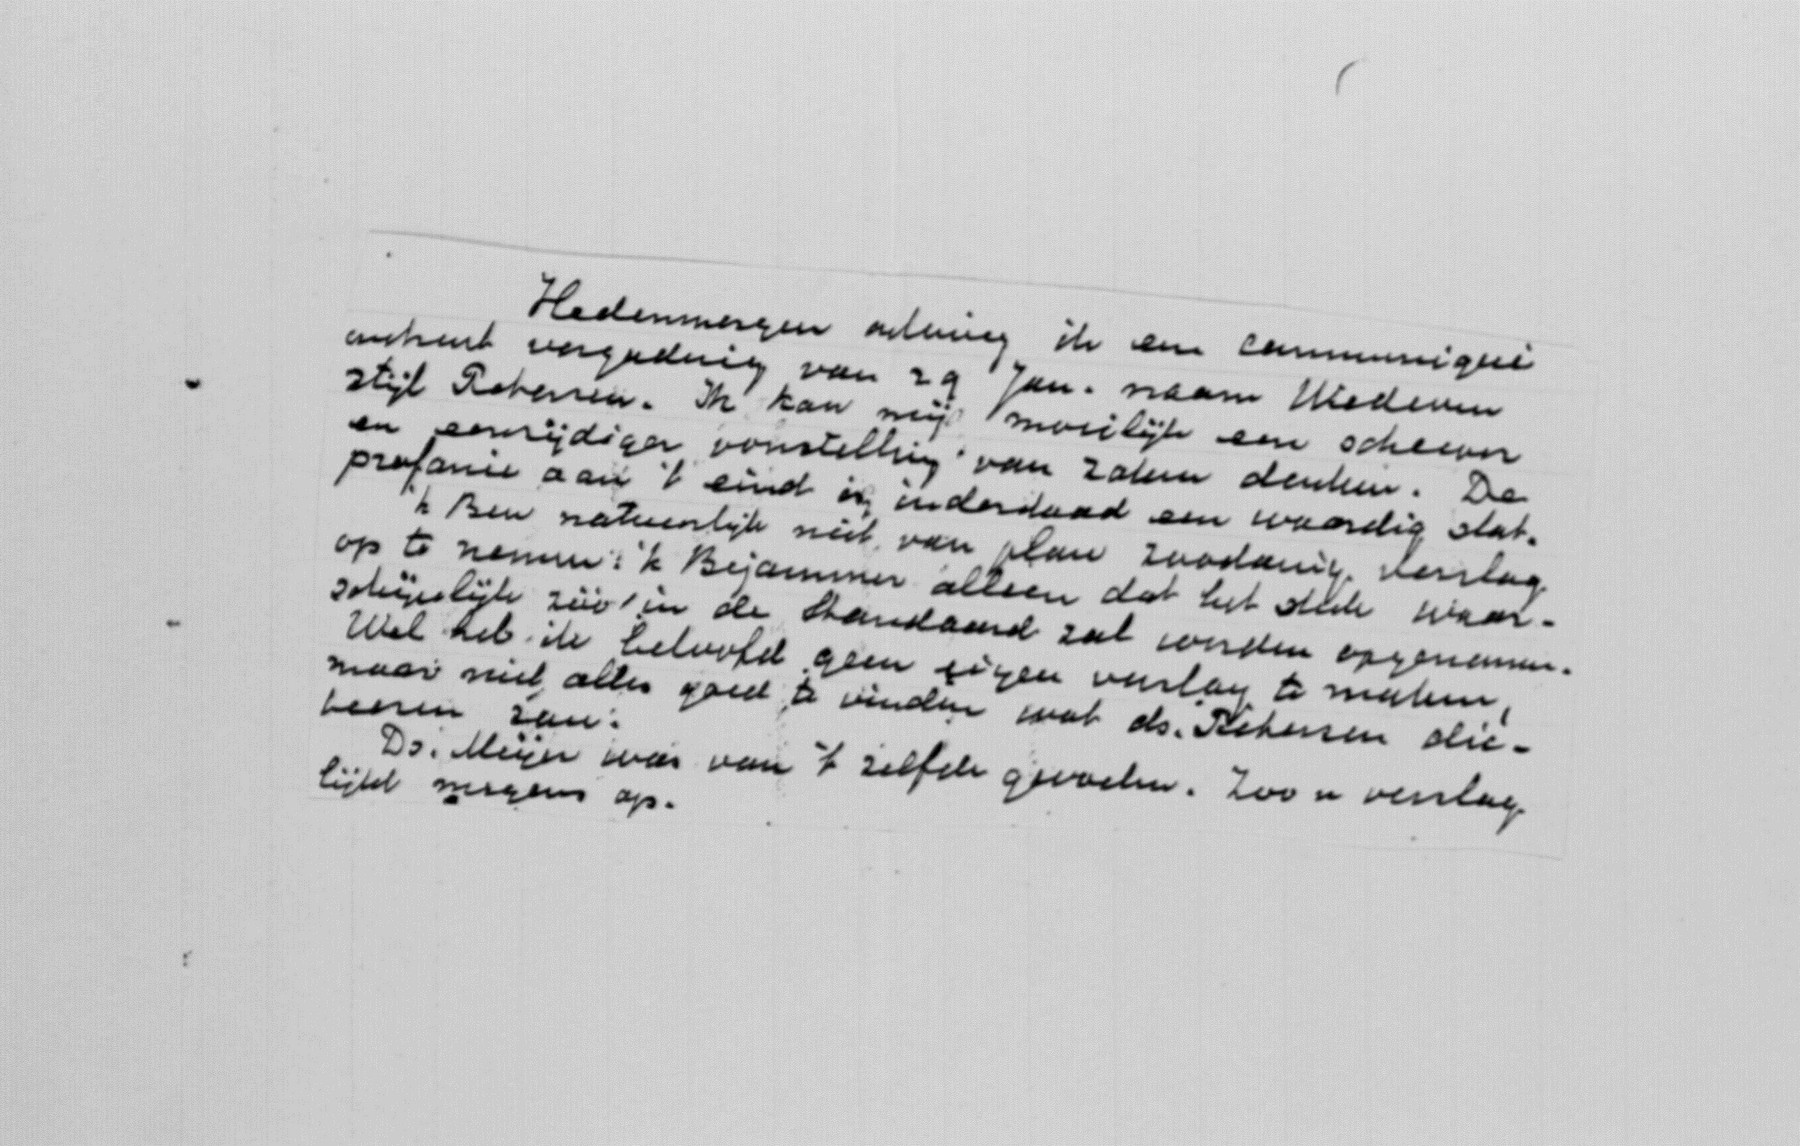 Hedenmorgen ontving ik een communiqué
omtrent vergadering van 29 Jan. naam Wedeven
stijl Petersen. Ik kan mij moeilijk een schever
en eenzijdiger voorstelling van zaken denken. De
profanie aan 't eind is inderdaad een waardig slot.
'k Ben natuurlijk niet van plan zoodanig verslag
op te nemen. 'k Bejammer alleen dat het stuk waar-
schijnlijk zóó in de Standaard zal worden opgenomen.
Wel heb ik beloofd geen eigen verslag te maken,
maar niet alles goed te vinden wat ds. Petersen dic-
teeren zou.
Ds. Meijer was van 't zelfde gevoelen. Zoo'n verslag
lijkt nergens op.